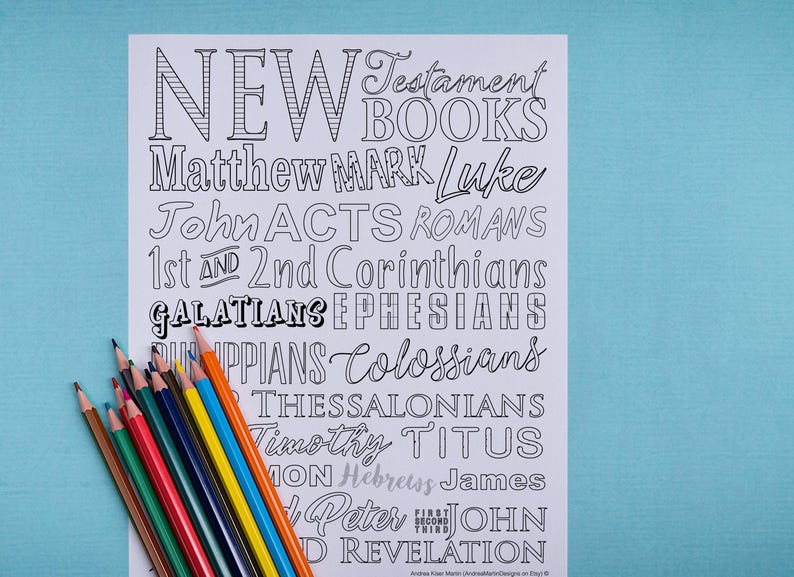 NEW Testament
BOOKS
Matthew MARK Luke
John ACTS ROMANS
1st AND 2nd Corinthians
GALATIANS EPHESIANS
PHILIPPIANS Colossians
THESSALONIANS
Timothy TITUS
MON Hebrews James
d Peter FIRST SECOND THIRD JOHN
D REVELATION
Andrea Kiser Martin (AndreaMartinDesigns on Etsy) ©